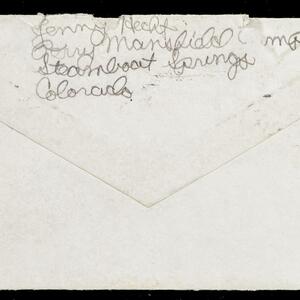 Jenny Hecht
Perry Mansfield Camp
Steamboat Springs
Colorado